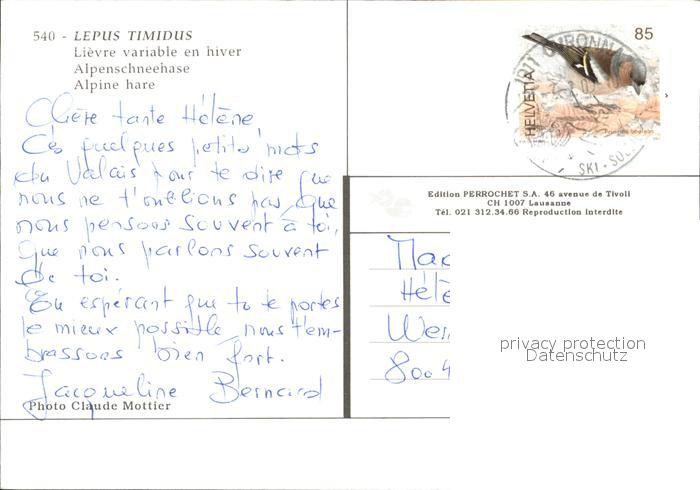 540 - LEPUS TIMIDUS
Lièvre variable en hiver
Alpenschneehase
Alpine hare
Chère tante Hélène
Ces quelques petits mots
du Valais pour te dire que
nous ne t'oublions pas, que
nous pensons souvent à toi,
que nous parlons souvent
de toi.
En espérant que tu te portes
le mieux possible, nous t'em-
brassons bien fort.
Jacqueline Bernard
Photo Claude Mottier
85
HELVETIA
SKI - 
Edition PERROCHET S.A. 46 avenue de Tivoli
CH 1007 Lausanne
Tél. 021 312.34.66 Reproduction interdite
Hélè
8004
privacy protection
Datenschutz